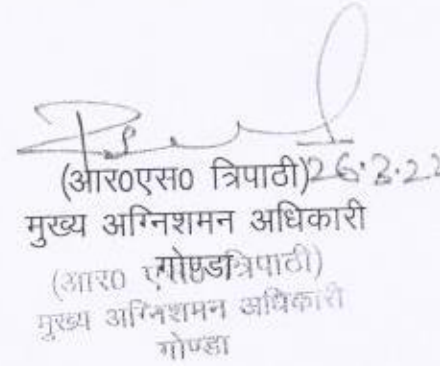 (आर0एस0 त्रिपाठी)
मुख्य अग्निशमन अधिकारी
गोण्डा
(आर0 एस0 त्रिपाठी)
मुख्य अग्निशमन अधिकारी
गोण्डा